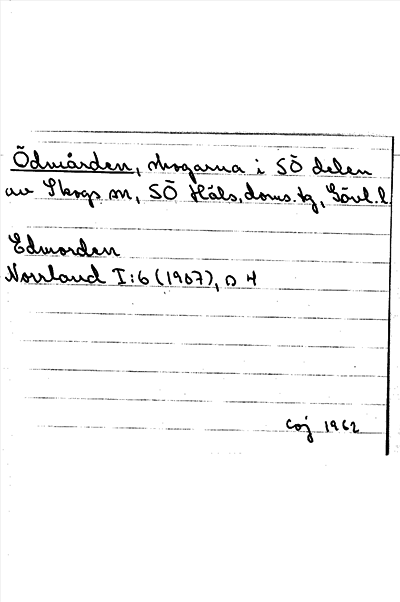 Ödmården, skogarna i SÖ delen
av Skogs sn, SÖ Häls. doms. tg, Gävl. l.
Edmorden
Norrland I:6 (1907), s 4
Coj 1962